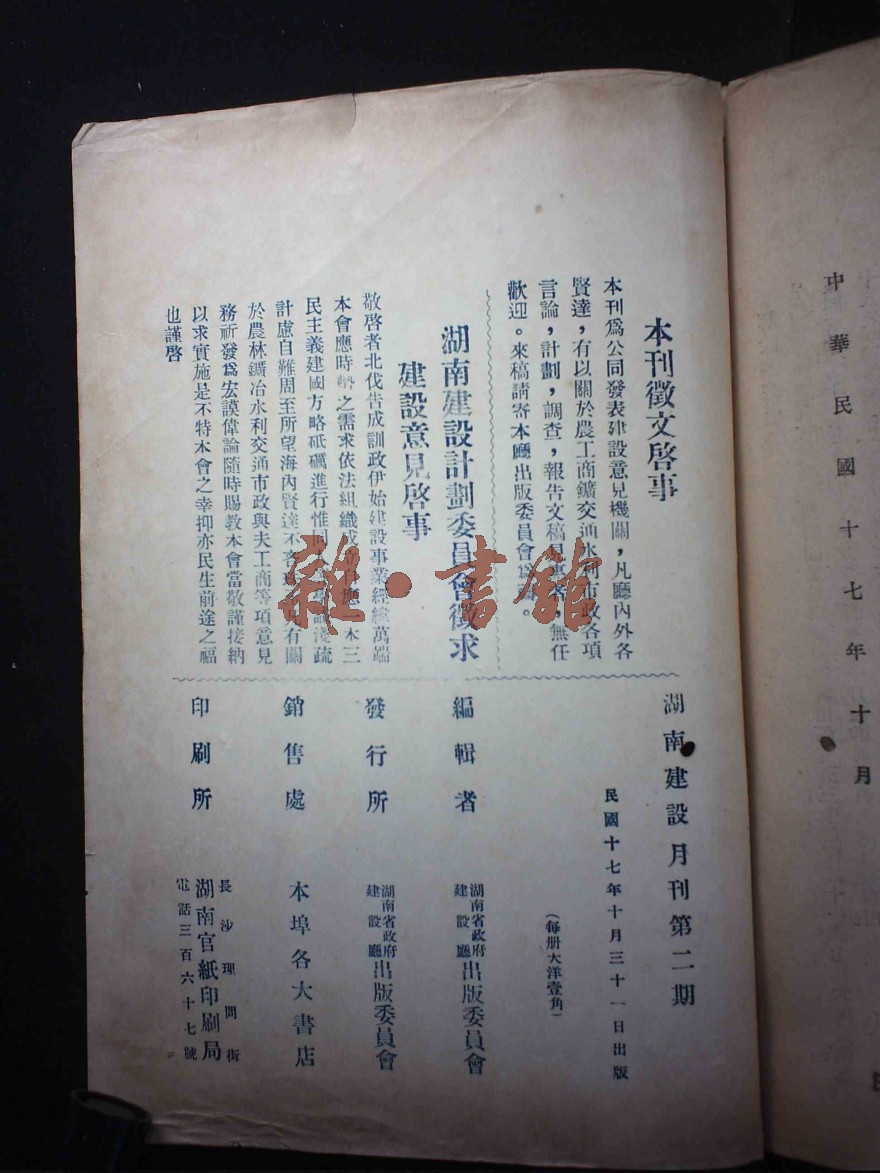 中華民國十七年十月
本刊徵文啓事
本刊爲公同發表建設意見機關，凡廳內外各
賢達，有以關於農工商鑛交通水利市政各項
言論，計劃，調查，報告文稿見惠者，無任
歡迎。來稿請寄本廳出版委員會爲
湖南建設計劃委員會徵求
建設意見啓事
敬啓者北伐告成訓政伊始建設事業經緯萬端
本會應時勢之需求依法組織成立自應一本三
民主義建國方略砥礪進行惟同人學識淺疏
計慮自難周至所望海內賢達不吝珠玉有關
於農林鑛冶水利交通市政與夫工商等項意見
務祈發爲宏謨偉論隨時賜教本會當敬謹接納
以求實施是不特本會之幸抑亦民生前途之福
也謹啓
湖南建設月刊第二期
民國十七年十月三十一日出版
（每册大洋壹角）
編輯者 湖南省政府建設廳出版委員會
發行所 湖南省政府建設廳出版委員會
銷售處 本埠各大書店
印刷所 長沙理問街
湖南官紙印刷局
電話三百六十七號
雜·書館